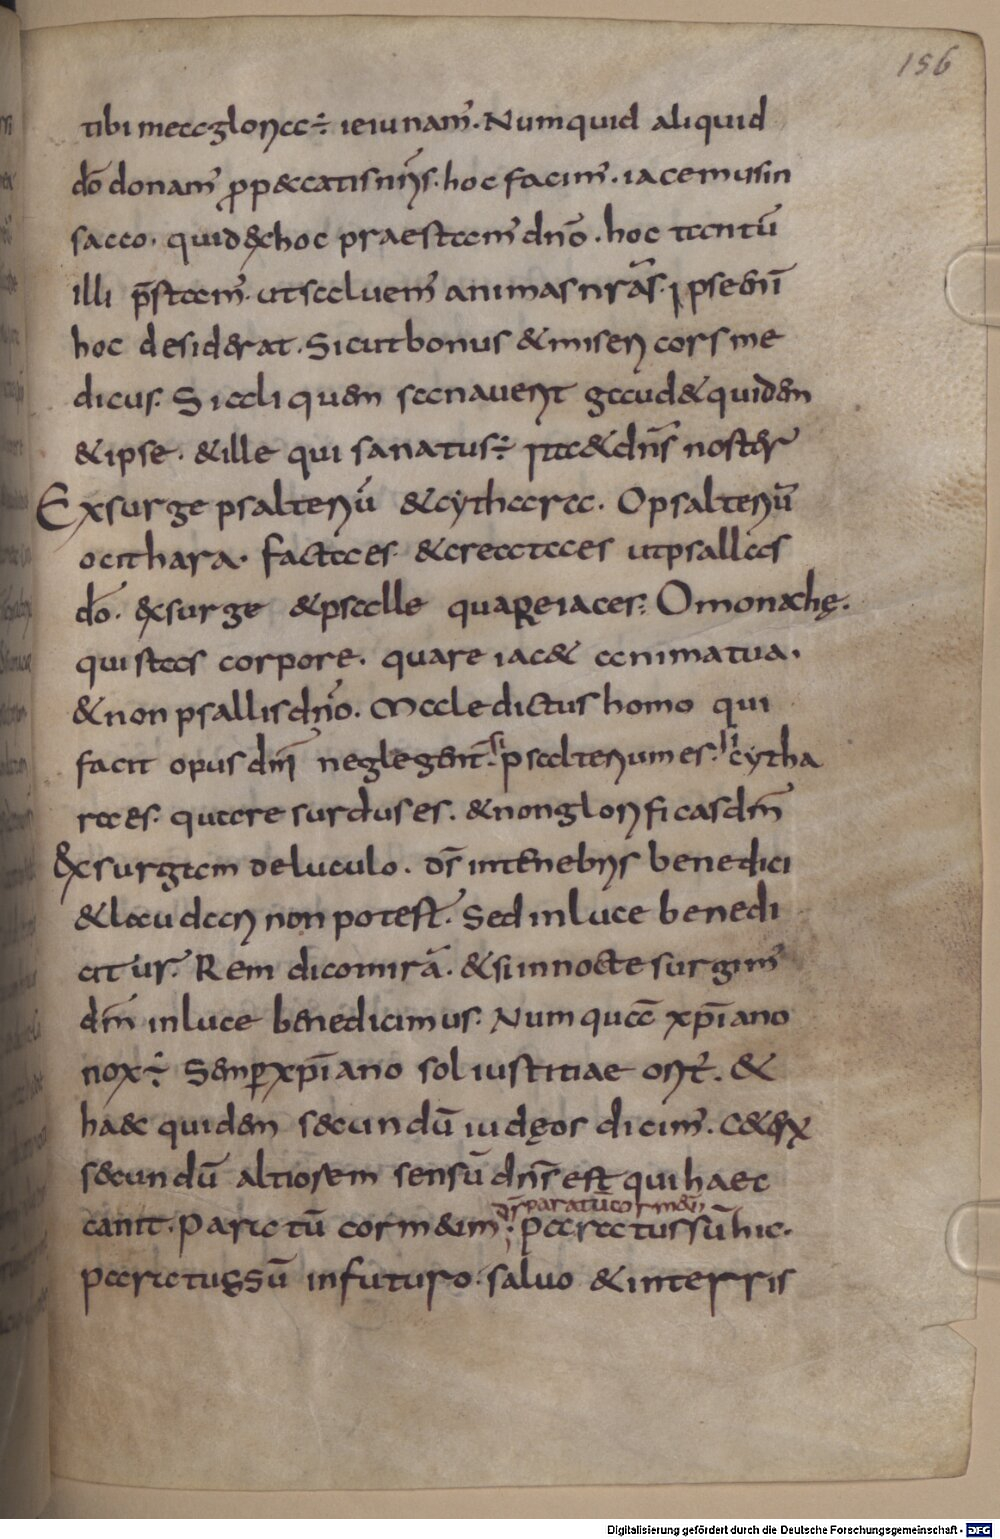 156
tibi mea gloria; ieiunam̄. Numquid aliquid
dō donam̄ ꝓ p&catis nr̄is. hoc facim̄. iacemus in
sacco. quid & hoc praestam̄ dnō. hoc tantū
illi p̄stam̄. ut saluem̄ animas nrās. ipse enī
hoc desiderat. Sicut bonus & misericors me
dicus. Si aliquem sanauerit gaud& quidem
& ipse. & ille qui sanatus; Ita & dn̄s noster
Exsurge psalteriū & cythara. O psalteriū
o cithara. facta es & creata es ut psallas
dō. exsurge & psalle quare iaces; O monachę.
qui stas corpore. quare iac& anima tua.
& non psallis dnō. Maledictus homo qui
facit opus dnī neglegent. si psalterium es. si cytha
ra es. quare surdus es. & non glorificas dnm̄
Exsurgam deluculo. ds̄ in tenebris benedici
& laudari non potest. Sed in luce benedi
citur. Rem dico mirā. & si in nocte surgim̄
dnm̄ in luce benedicimus. Numquā xp̄iano
nox; Semꝑ xp̄iano sol iustitiae orit̄. &
haec quidem secundū iudęos dicim̄. C&er
secundū altiorem sensū dn̄s est qui haec
canit. Paratū cor meum; ds̄ paratū cor meū paratus sū hic.
Paratus sū in futuro. saluo & in terris
Digitalisierung gefördert durch die Deutsche Forschungsgemeinschaft - DFG